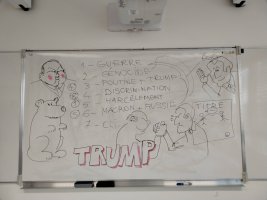 1 - GUERRE
2 - GENOCIDE
3 - POUTINE + TRUMP
4 - DISCRIMINATION
5 - HARCELEMENT
6 - MACRON +
7 -
TITRE
TRUMP